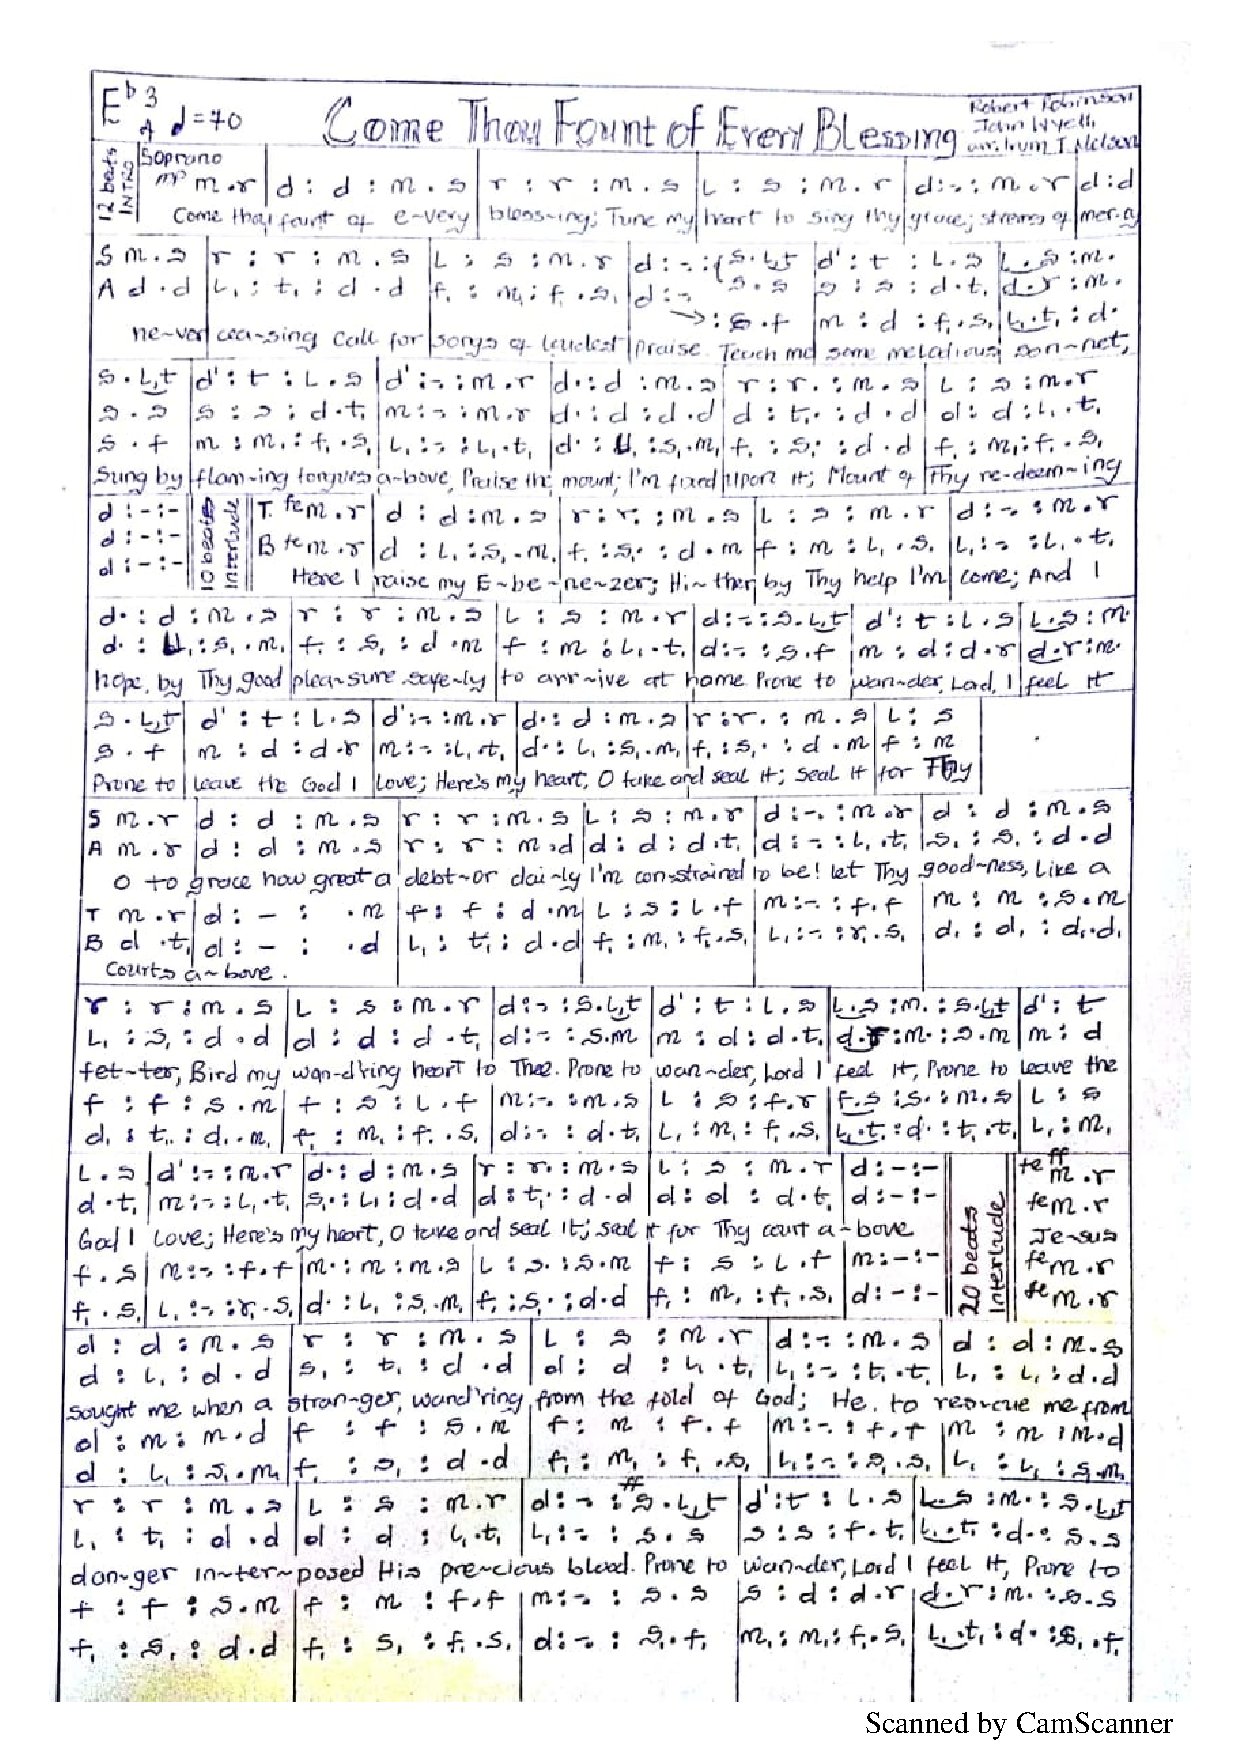 E♭ 3/4 ♩=70 Come Thou Fount of Every Blessing Robert Robinson
John Wyeth
12 beats INTRO Soprano
mp m.r | d : d : m.s | r : r : m.s | L : s : m.r | d:-: m.r | d:d
Come thou fount of e-very blessing; Tune my heart to sing thy grace; streams of mer-cy
S m.s | r : r : m.s | L : s : m.r | d:-:{s.L,t | d' : t : L.s | L.s : m.
A d.d | L, : t, : d.d | f, : m, : f,.s, | d:- s.s | s : s : d.t, | d.r : m.
: s.f | m : d : f,.s, | L,.t, : d.
ne-ver cea-sing Call for songs of loudest praise. Teach me some melodious son-net,
s.L,t | d' : t : L.s | d':-: m.r | d.: d : m.s | r : r. : m.s | L : s : m.r
s.s | s : s : d.t, | m:-: m.r | d.: d : d.d | d : t,. : d.d | d : d : L,.t,
s.f | m : m, : f,.s, | L,:-: L,.t, | d. : L, : s,.m, | f, : s,. : d.d | f, : m, : f,.s,
Sung by flam-ing tongues a-bove, Praise the mount; I'm fixed upon it; Mount of Thy re-deem-ing
d:-:- | 10 beats Interlude | T. fe m.r | d : d : m.s | r : r. : m.s | L : s : m.r | d:-: m.r
d:-:- | B fe m.r | d : L, : s,.m, | f, : s,. : d.m | f : m : L,.s, | L,:-: L,.t,
d:-:-
Here I raise my E-be-ne-zer; Hi-ther by Thy help I'm come; And I
d. : d : m.s | r : r : m.s | L : s : m.r | d:-: s.L,t | d' : t : L.s | L.s : m.
d. : L, : s,.m, | f, : s, : d.m | f : m : L,.t, | d:-: s.f | m : d : d.r | d.r : m.
hope, by Thy good plea-sure safe-ly to arr-ive at home Prone to wan-der, Lord, I feel it
s.L,t | d' : t : L.s | d':-: m.r | d. : d : m.s | r : r. : m.s | L : s
s.f | m : d : d.r | m:-: L,.t, | d. : L, : s,.m, | f, : s,. : d.m | f : m
Prone to leave the God I love; Here's my heart, O take and seal it; seal it for Thy
S m.r | d : d : m.s | r : r : m.s | L : s : m.r | d:-. : m.r | d : d : m.s
A m.r | d : d : m.s | r : r : m.d | d : d : d.t, | d:-: L,.t, | s, : s, : d.d
O to grace how great a debt-or dai-ly I'm con-strained to be! let Thy good-ness, Like a
T m.r | d:- : .m | f : f : d.m | L : s : L.f | m:-: f.f | m : m : s.m
B d.t, | d:- : .d | L, : t, : d.d | f, : m, : f,.s, | L,:-: r,.s, | d, : d, : d,.d,
Courts a-bove.
r : r : m.s | L : s : m.r | d:-: s.L,t | d' : t : L.s | L.s : m. : s.L,t | d' : t
L, : s, : d.d | d : d : d.t, | d:-: s.m | m : d : d.t, | d.r : m. : s.m | m : d
fet-ter, Bind my wan-d'ring heart to Thee. Prone to wan-der, Lord I feel it, Prone to leave the
f : f : s.m | f : s : L.f | m:-. : m.s | L : s : f.r | f.s : s. : m.s | L : s
d, : t,. : d,.m, | f, : m, : f,.s, | d:-: d.t, | L, : m, : f,.s, | L,.t, : d. : t,.t, | L, : m,
L.s | d':-: m.r | d. : d : m.s | r : r. : m.s | L : s : m.r | d:-:- | 20 beats Interlude | ff fe m.r
d.t, | m:-: L,.t, | s,. : L, : d.d | d : t,. : d.d | d : d : d.t, | d:-:- | fe m.r
God I Love; Here's my heart, O take and seal it; seal it for Thy court a-bove Je-sus
f.s | m:-: f.f | m. : m : m.s | L : s. : s.m | f : s : L.f | m:-:- | fe m.r
f,.s, | L,:-: r,.s, | d. : L, : s,.m, | f, : s,. : d.d | f, : m, : f,.s, | d:-:- | fe m.r
d : d : m.s | r : r : m.s | L : s : m.r | d:-: m.s | d : d : m.s
d : L, : d.d | s, : t, : d.d | d : d : L,.t, | L,:-: t,.t, | L, : L, : d.d
sought me when a stran-ger, wand'ring from the fold of God; He, to rescue me from
d : m : m.d | f : f : s.m | f : m : f.f | m:-: f.f | m : m : m.d
d : L, : s,.m, | f, : s, : d.d | f, : m, : f,.s, | L,:-: s,.s, | L, : L, : s,.m,
r : r : m.s | L : s : m.r | d:-: ff s.L,t | d':t : L.s | L.s : m. : s.L,t
L, : t, : d.d | d : d : L,.t, | L,:-: s.s | s : s : f.t, | L,.t, : d. : s.s
dan-ger in-ter-posed His pre-cious blood. Prone to wan-der, Lord I feel it, Prone to
f : f : s.m | f : m : f.f | m:-: s.s | s : d : d.r | d.r : m. : s.s
f, : s, : d.d | f, : s, : f,.s, | d:-: s,.f, | m, : m, : f,.s, | L,.t, : d. : s,.f,
Scanned by CamScanner